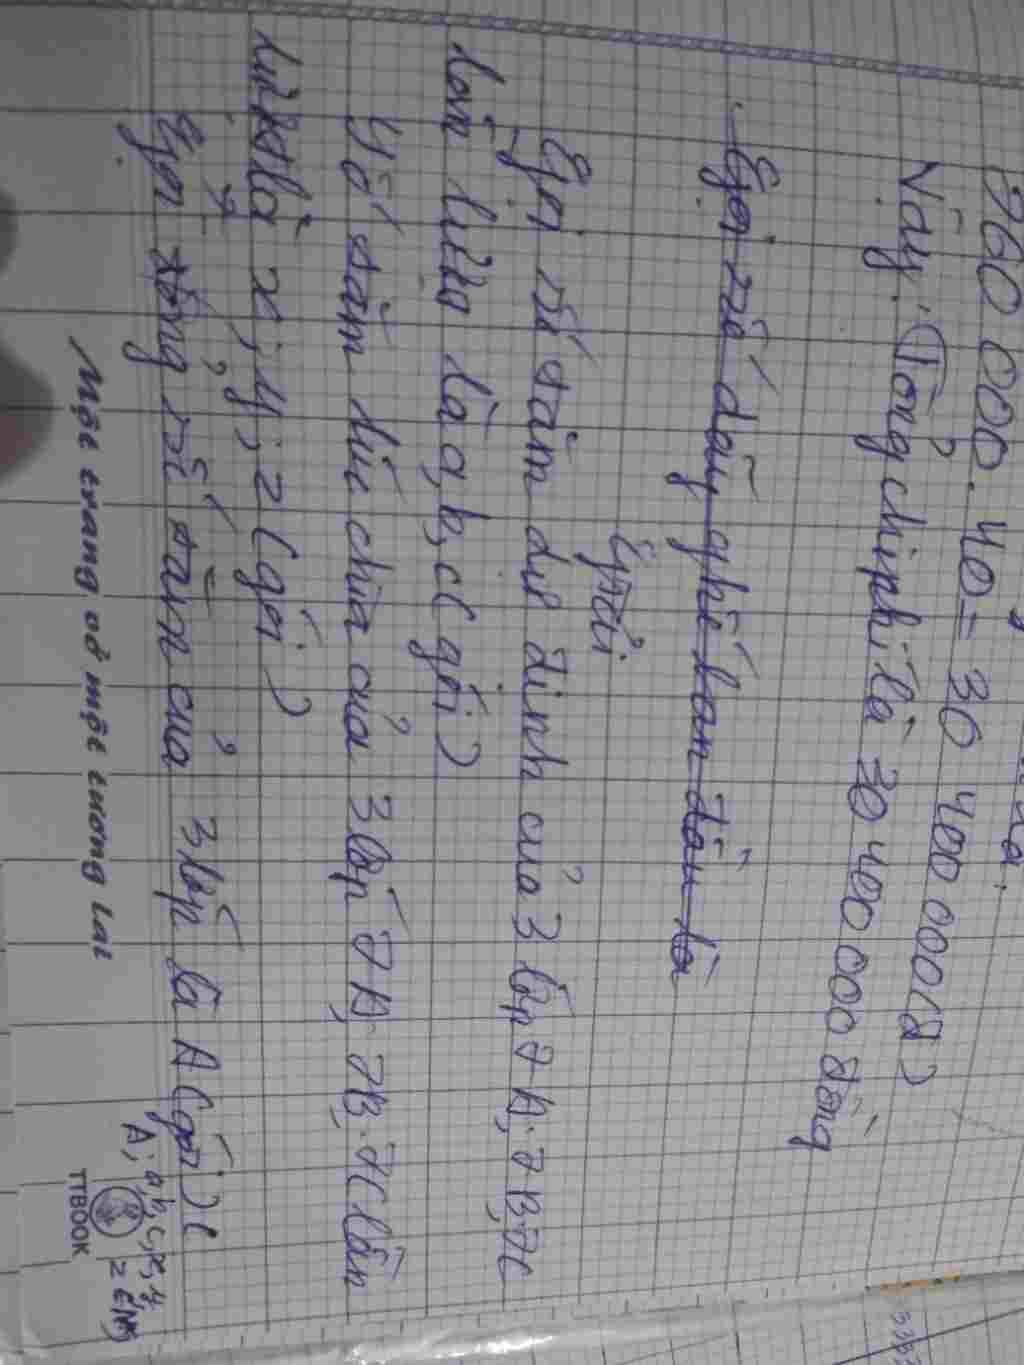 760 000. 40 = 30 400 000 (đ)
Vậy. Tổng chi phí là 30 400 000 đồng
Gọi số dãy ghế ban đầu là
Giải
Gọi số tăm dự định của 3 lớp 7A, 7B, 7C
lần lượt là a, b, c (gói)
Số tăm lúc chia của 3 lớp 7A, 7B, 7C lần
lượt là x; y; z (gói)
Gọi tổng số tăm của 3 lớp là A (gói) (
A; a, b, c, x, y
z ∈ N*)
TTBOOK
Một trang vở một tương lai
333